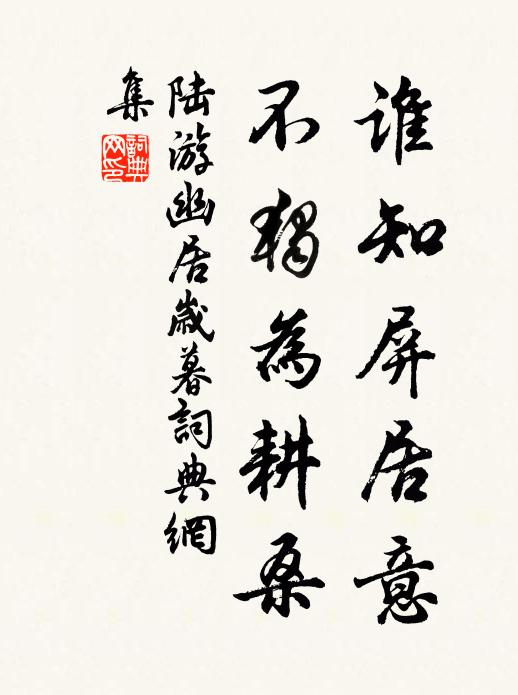 誰知屏居意
不獨為耕桑
陸游幽居歲暮詞典網
集
詞典
網印